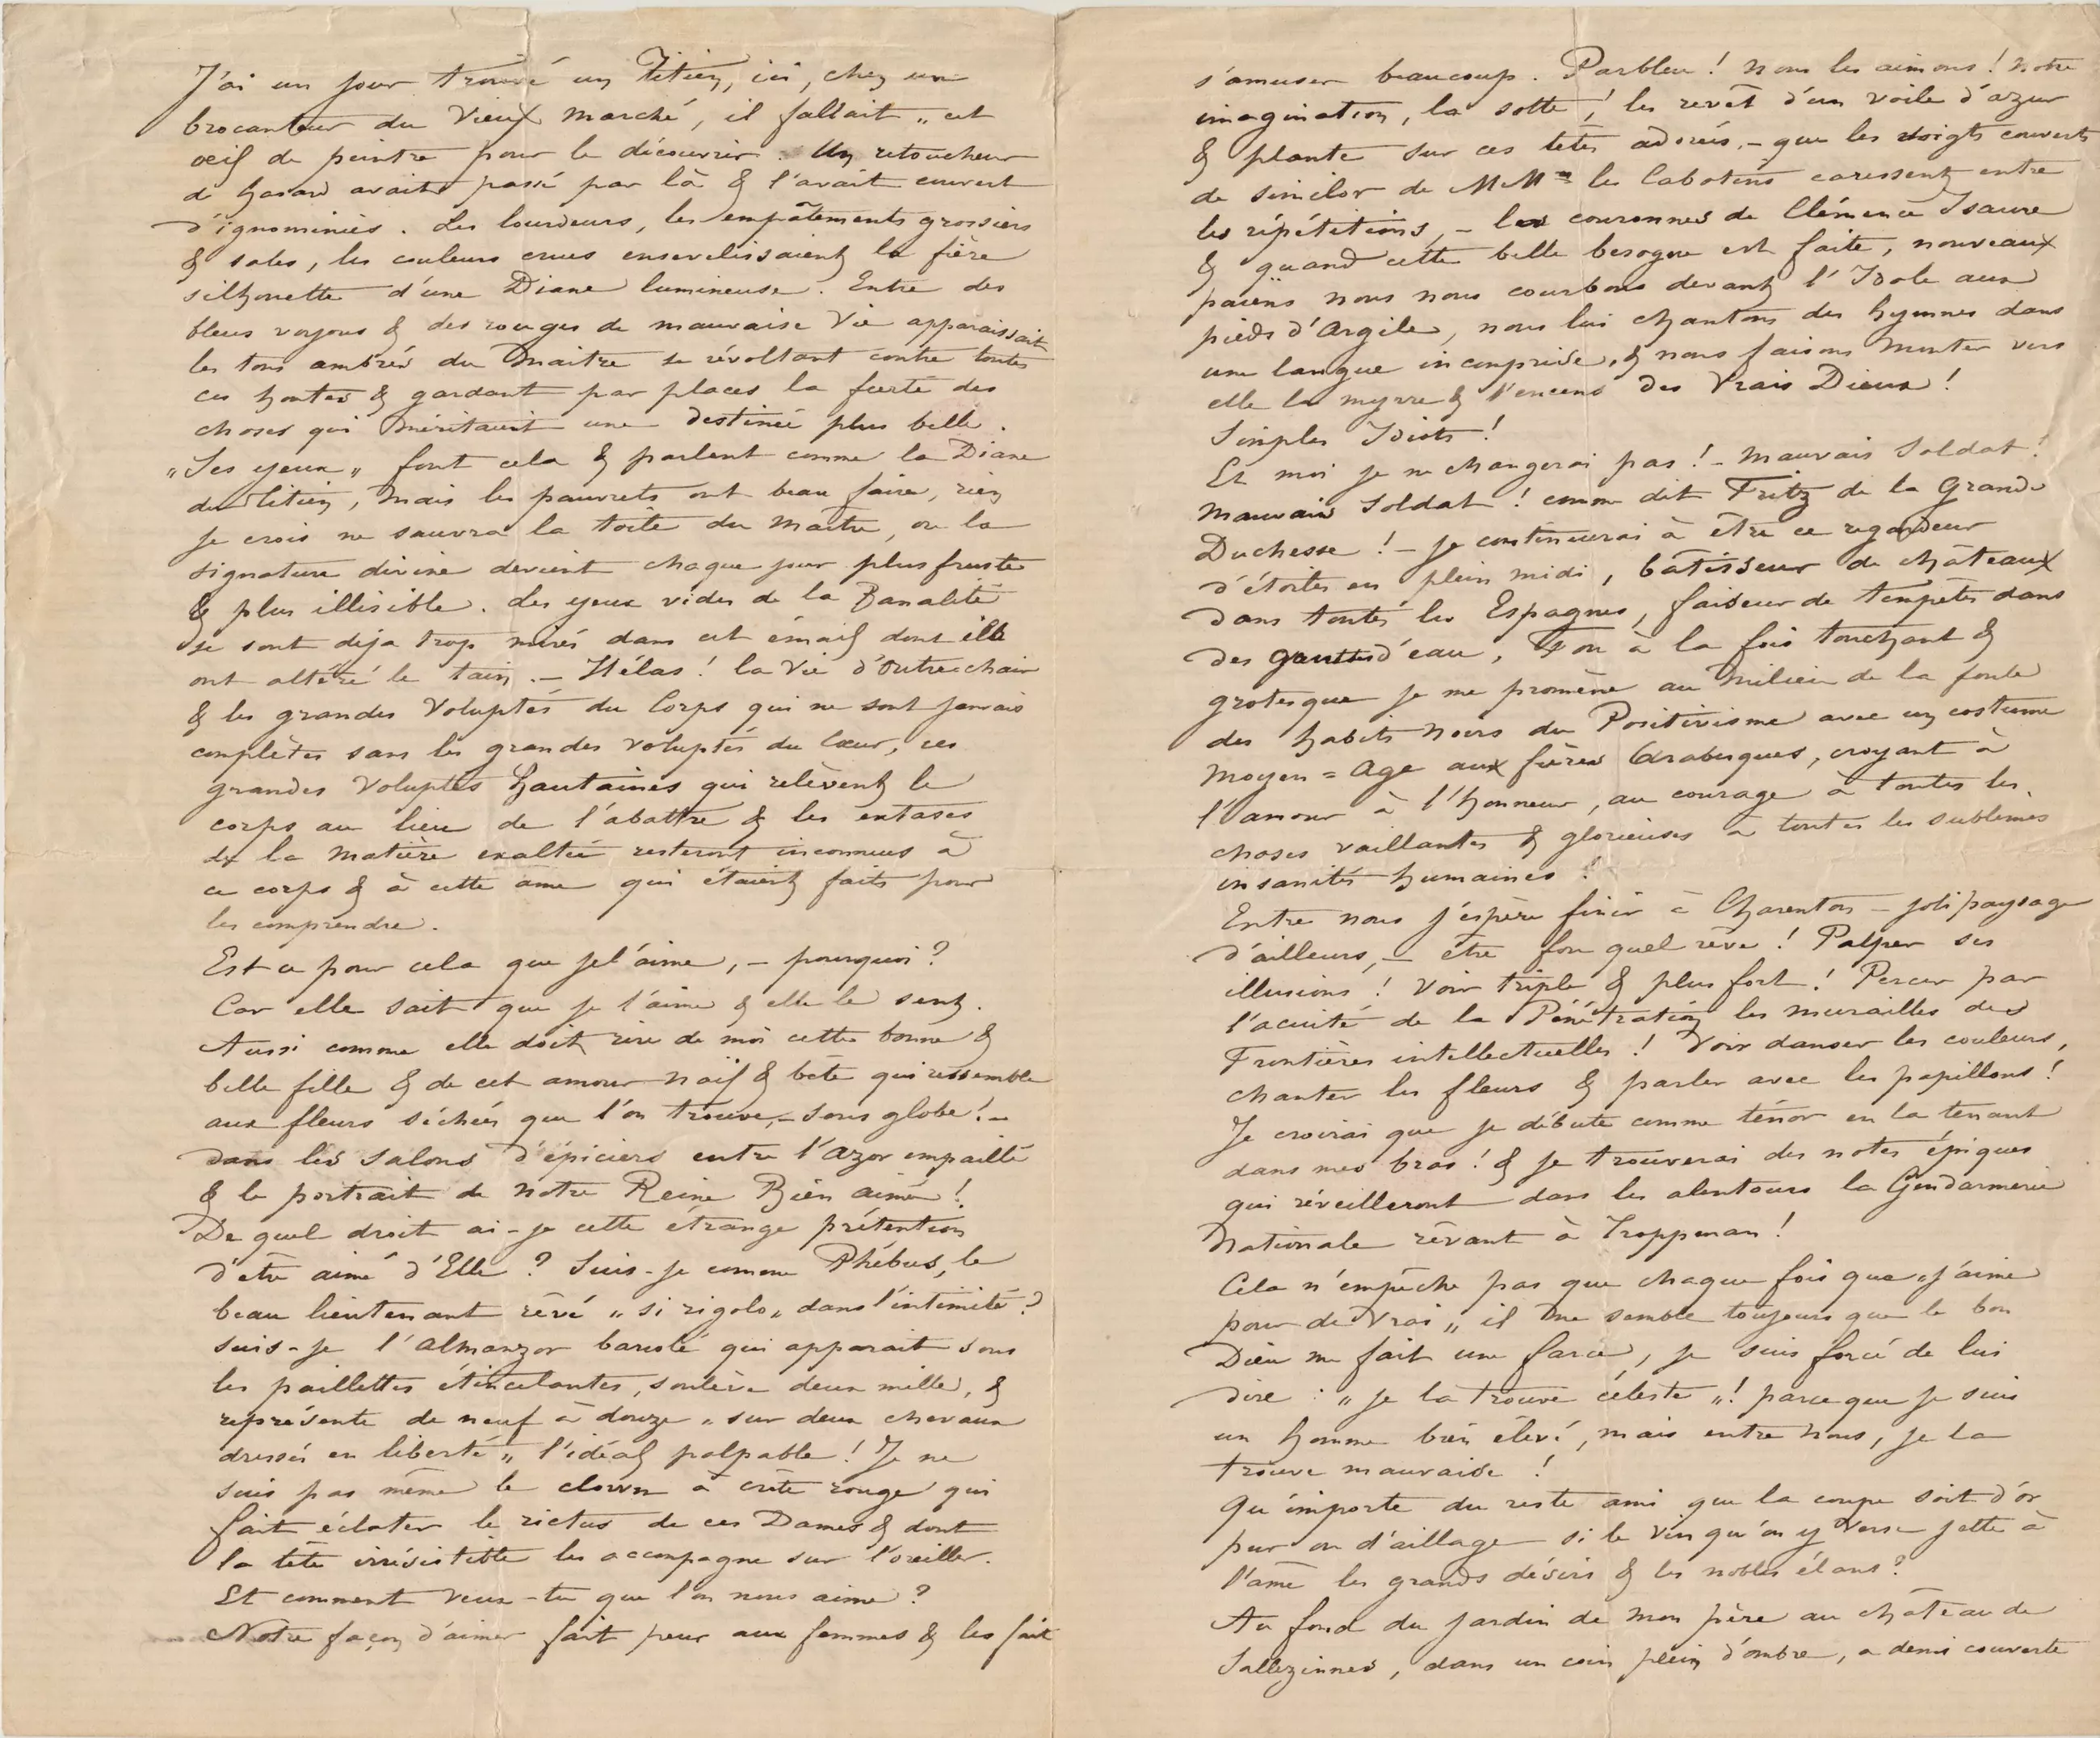 J'ai un jour trouvé un Titien, ici, chez un
brocanteur du Vieux Marché, il fallait „ cet
œil de peintre pour le découvrir. Un retoucheur
de hasard avait passé par là & l'avait couvert
d'ignominies. Les lourdeurs, les empâtements grossiers
& sales, les couleurs crues ensevelissaient la fière
silhouette d'une Diane lumineuse. Entre des
bleus voyous & des rouges de mauvaise vie apparaissait
les tons ambrés du Maitre se révoltant contre toutes
ces hontes & gardant par places la fierté des
choses qui méritaient une destinée plus belle.
„Ses yeux„ font cela & parlent comme la Diane
du Titien, mais les pauvrets ont beau faire, rien
je crois ne sauvra la toile du Maître, ou la
signature divine devient chaque jour plus fruste
& plus illisible. Les yeux vides de la Banalité
se sont deja trop mirés dans cet émail dont ils
ont altéré le tain. – Hélas! la Vie d'Outre-chair
& les grandes Voluptés du Corps qui ne sont jamais
complètes sans les grandes voluptés du Cœur, ces
grandes Voluptés hautaines qui relèvent le
corps au lieu de l'abattre & les extases
de la Matière exaltée resteront inconnues à
ce corps & à cette âme qui étaient faits pour
les comprendre.
Est ce pour cela que je l'aime, – pourquoi?
Car elle sait que je l'aime & elle le sent.
Aussi comme elle doit rire de moi cette bonne &
belle fille & de cet amour naïf & bête qui ressemble
aux fleurs séchées que l'on trouve, – sous globe! –
dans les salons d'épiciers entre l'Azor empaillé
& le portrait de notre Reine Bien aimée!
De quel droit ai-je cette étrange prétention
d'être aimé d'Elle? Suis-je comme Phébus, le
beau lieutenant rêvé „si rigolo„ dans l'intimité?
suis-je l'Almanzor bariolé qui apparait sous
les paillettes étincelantes, soulève deux mille, &
représente de neuf à douze „sur deux chevaux
dressés en liberté„ l'idéal palpable! Je ne
suis pas même le clown à crête rouge qui
fait éclater le rictus de ces Dames & dont
la tête irrésistible les accompagne sur l'oreiller.
Et comment veux-tu que l'on nous aime?
Notre façon d'aimer fait peur aux femmes & les fait
s'amuser beaucoup. Parbleu! nous les aimons! notre
imagination, la sotte! les revêt d'un voile d'azur
& plante sur ces têtes adorées, – que les doigts couverts
de similor de MMrs les Cabotins caressent entre
les répétitions, – les couronnes de Clémence Isaure
& quand cette belle besogne est faite, nouveaux
païens nous nous courbons devant l'Idole aux
pieds d'Argile, nous lui chantons des hymnes dans
une langue incomprise, & nous faisons monter vers
elle la myrre & l'encens des Vrais Dieux!
Simples Idiots!
Et moi je ne changerai pas! – Mauvais Soldat!
Mauvais Soldat! comme dit Fritz de la Grande
Duchesse! – je continuerai à être ce regardeur
d'étoiles en plein midi, bâtisseur de châteaux
dans toutes les Espagnes, faiseur de tempêtes dans
des gouttes d'eau, Fou à la fois touchant &
grotesque je me promène au milieu de la foule
des habits noirs du Positivisme avec un costume
Moyen=Age aux fières Arabesques, croyant à
l'amour à l'honneur, au courage à toutes les
choses vaillantes & glorieuses à toutes les sublimes
insanités humaines!
Entre nous j'espère finir à Charenton – joli paysage
d'ailleurs, – être fou quel rêve! Palper ses
illusions! Voir triple & plus fort! Percer par
l'acuité de la Pénétration les murailles des
Frontières intellectuelles! Voir danser les couleurs,
chanter les fleurs & parler avec les papillons!
Je croirai que je débute comme ténor en la tenant
dans mes bras! & je trouverai des notes épiques
qui réveilleront dans les alentours la Gendarmerie
Nationale rêvant à Troppman!
Cela n'empêche pas que chaque fois que „j'aime
pour de Vrai„ il me semble toujours que le bon
Dieu me fait une farce, je suis forcé de lui
dire: „je la trouve céleste„! parce que je suis
un homme bien élevé, mais entre nous, je la
trouve mauvaise!
Qu'importe du reste ami que la coupe soit d'or
pur ou d'aillage si le vin qu'on y verse jette à
l'âme les grands désirs & les nobles élans?
Au fond du jardin de mon père au château de
Sallezinnes, dans un coin plein d'ombre, a demi couverte